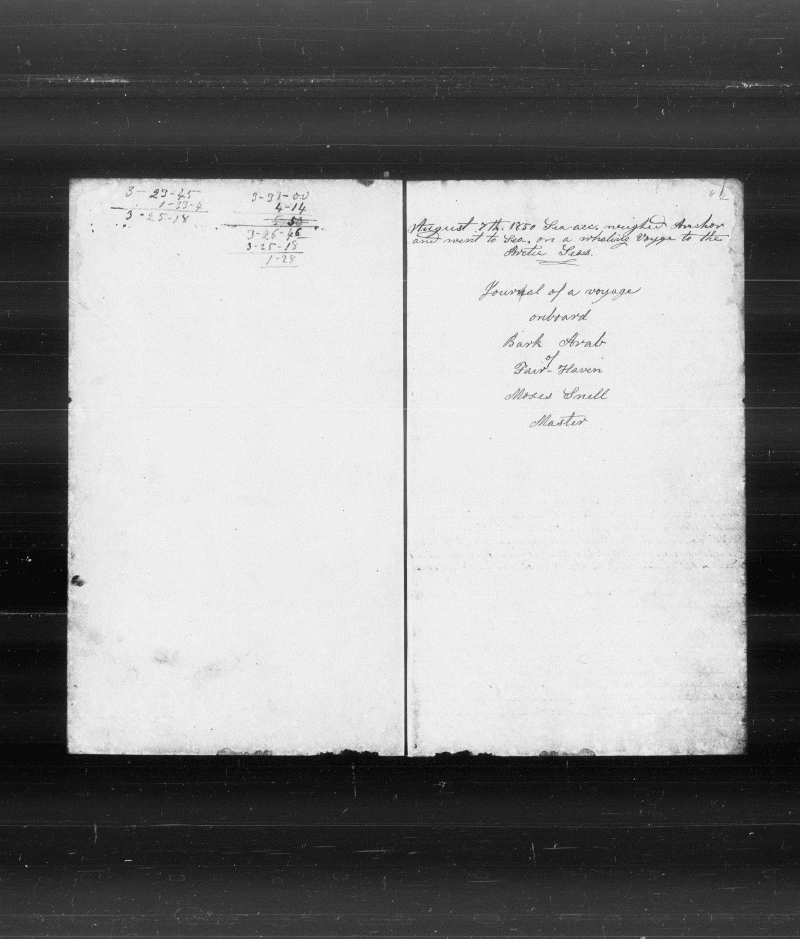 3-23-45
1-33-4
3-25-18
3-31-00
4-14
5 30
3-26-46
3-25-18
1-28
August 7th 1850 Sea acc. weighed Anchor
and went to Sea, on a whaling Voyge to the
Arctic Seas.
Journal of a voyage
onboard
Bark Arab
of
Fair-Haven
Moses Snell
Master